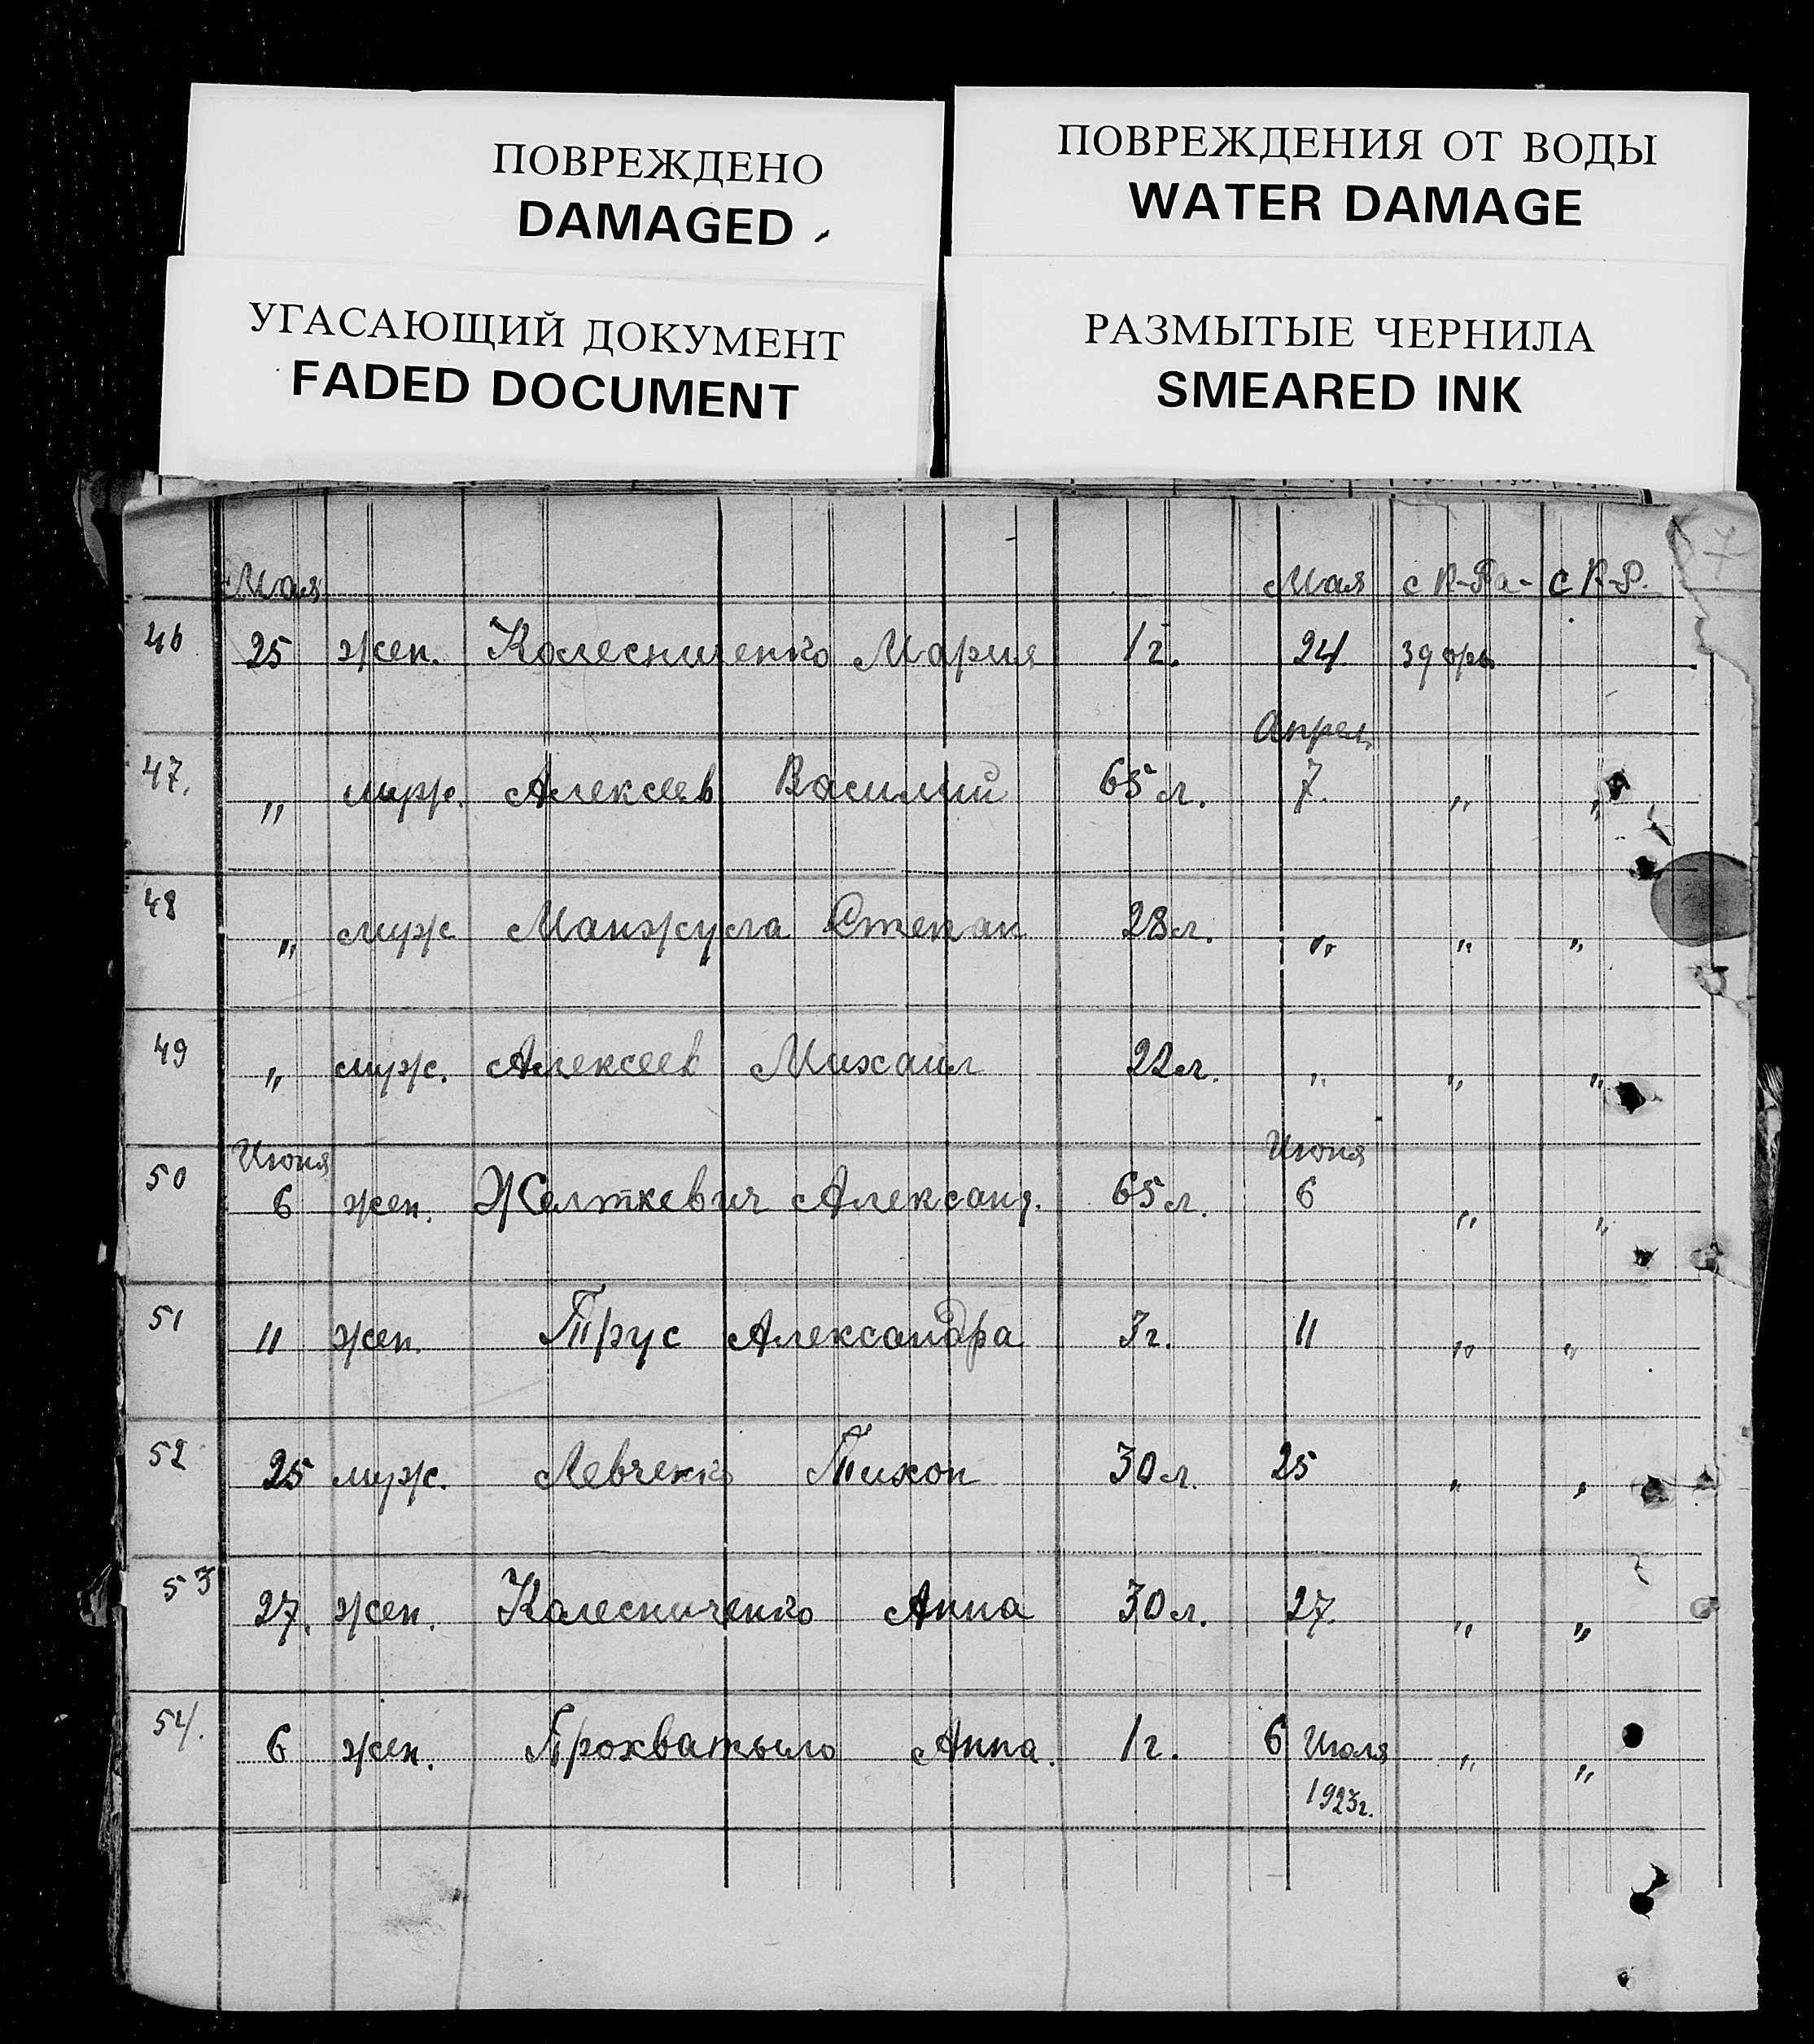 ПОВРЕЖДЕНО
DAMAGED
ПОВРЕЖДЕНИЯ ОТ ВОДЫ
WATER DAMAGE
УГАСАЮЩИЙ ДОКУМЕНТ
FADED DOCUMENT
РАЗМЫТЫЕ ЧЕРНИЛА
SMEARED INK
Мая Мая с К-Га- с К-Р.
46 25 жен. Колесниченко Мария 1 г. 24
Апрел.
47. " муж. Алексеев Василий 65 л. 7. " "
48 " муж Манжула Степан 28 л. " " "
49 " муж. Алексеев Михаил 22 л. " " "
Июня Июня
50 6 жен. Желткевич Александ. 65 л. 6 " "
51 11 жен. Трус Александра 3 г. 11 " "
52 25 муж. Левченко Тихон 30 л. 25 " "
53 27. жен. Колесниченко Анна 30 л. 27. " "
54. 6 жен. Прохватыло Анна. 1 г. 6 Июля " "
1923 г.